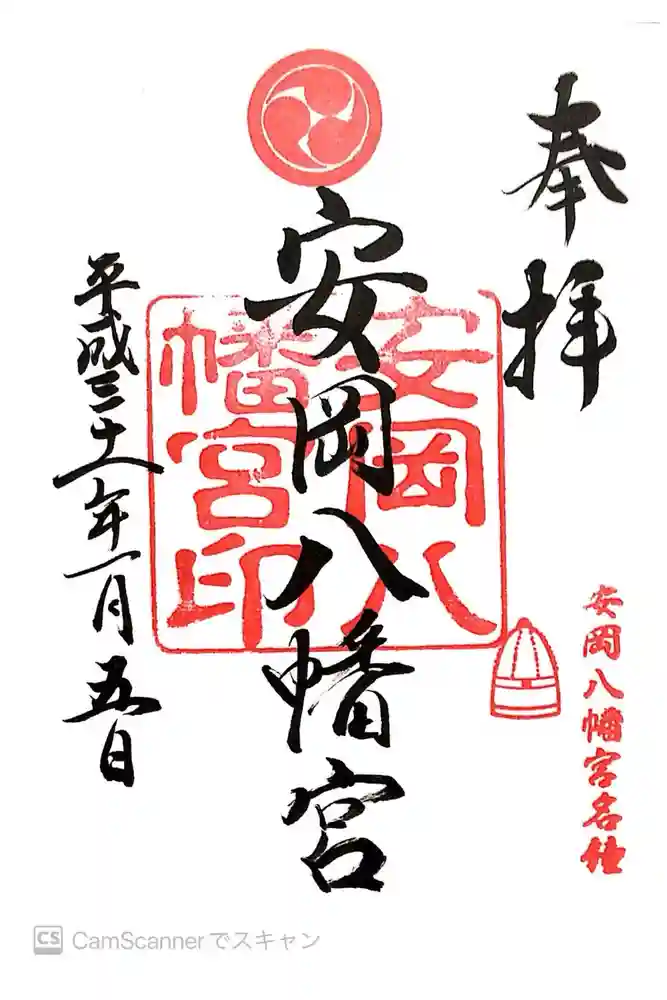 奉拝
安岡八幡宮
安岡八
幡宮印
平成三十一年一月五日
安岡八幡宮名鐘
CS CamScannerでスキャン